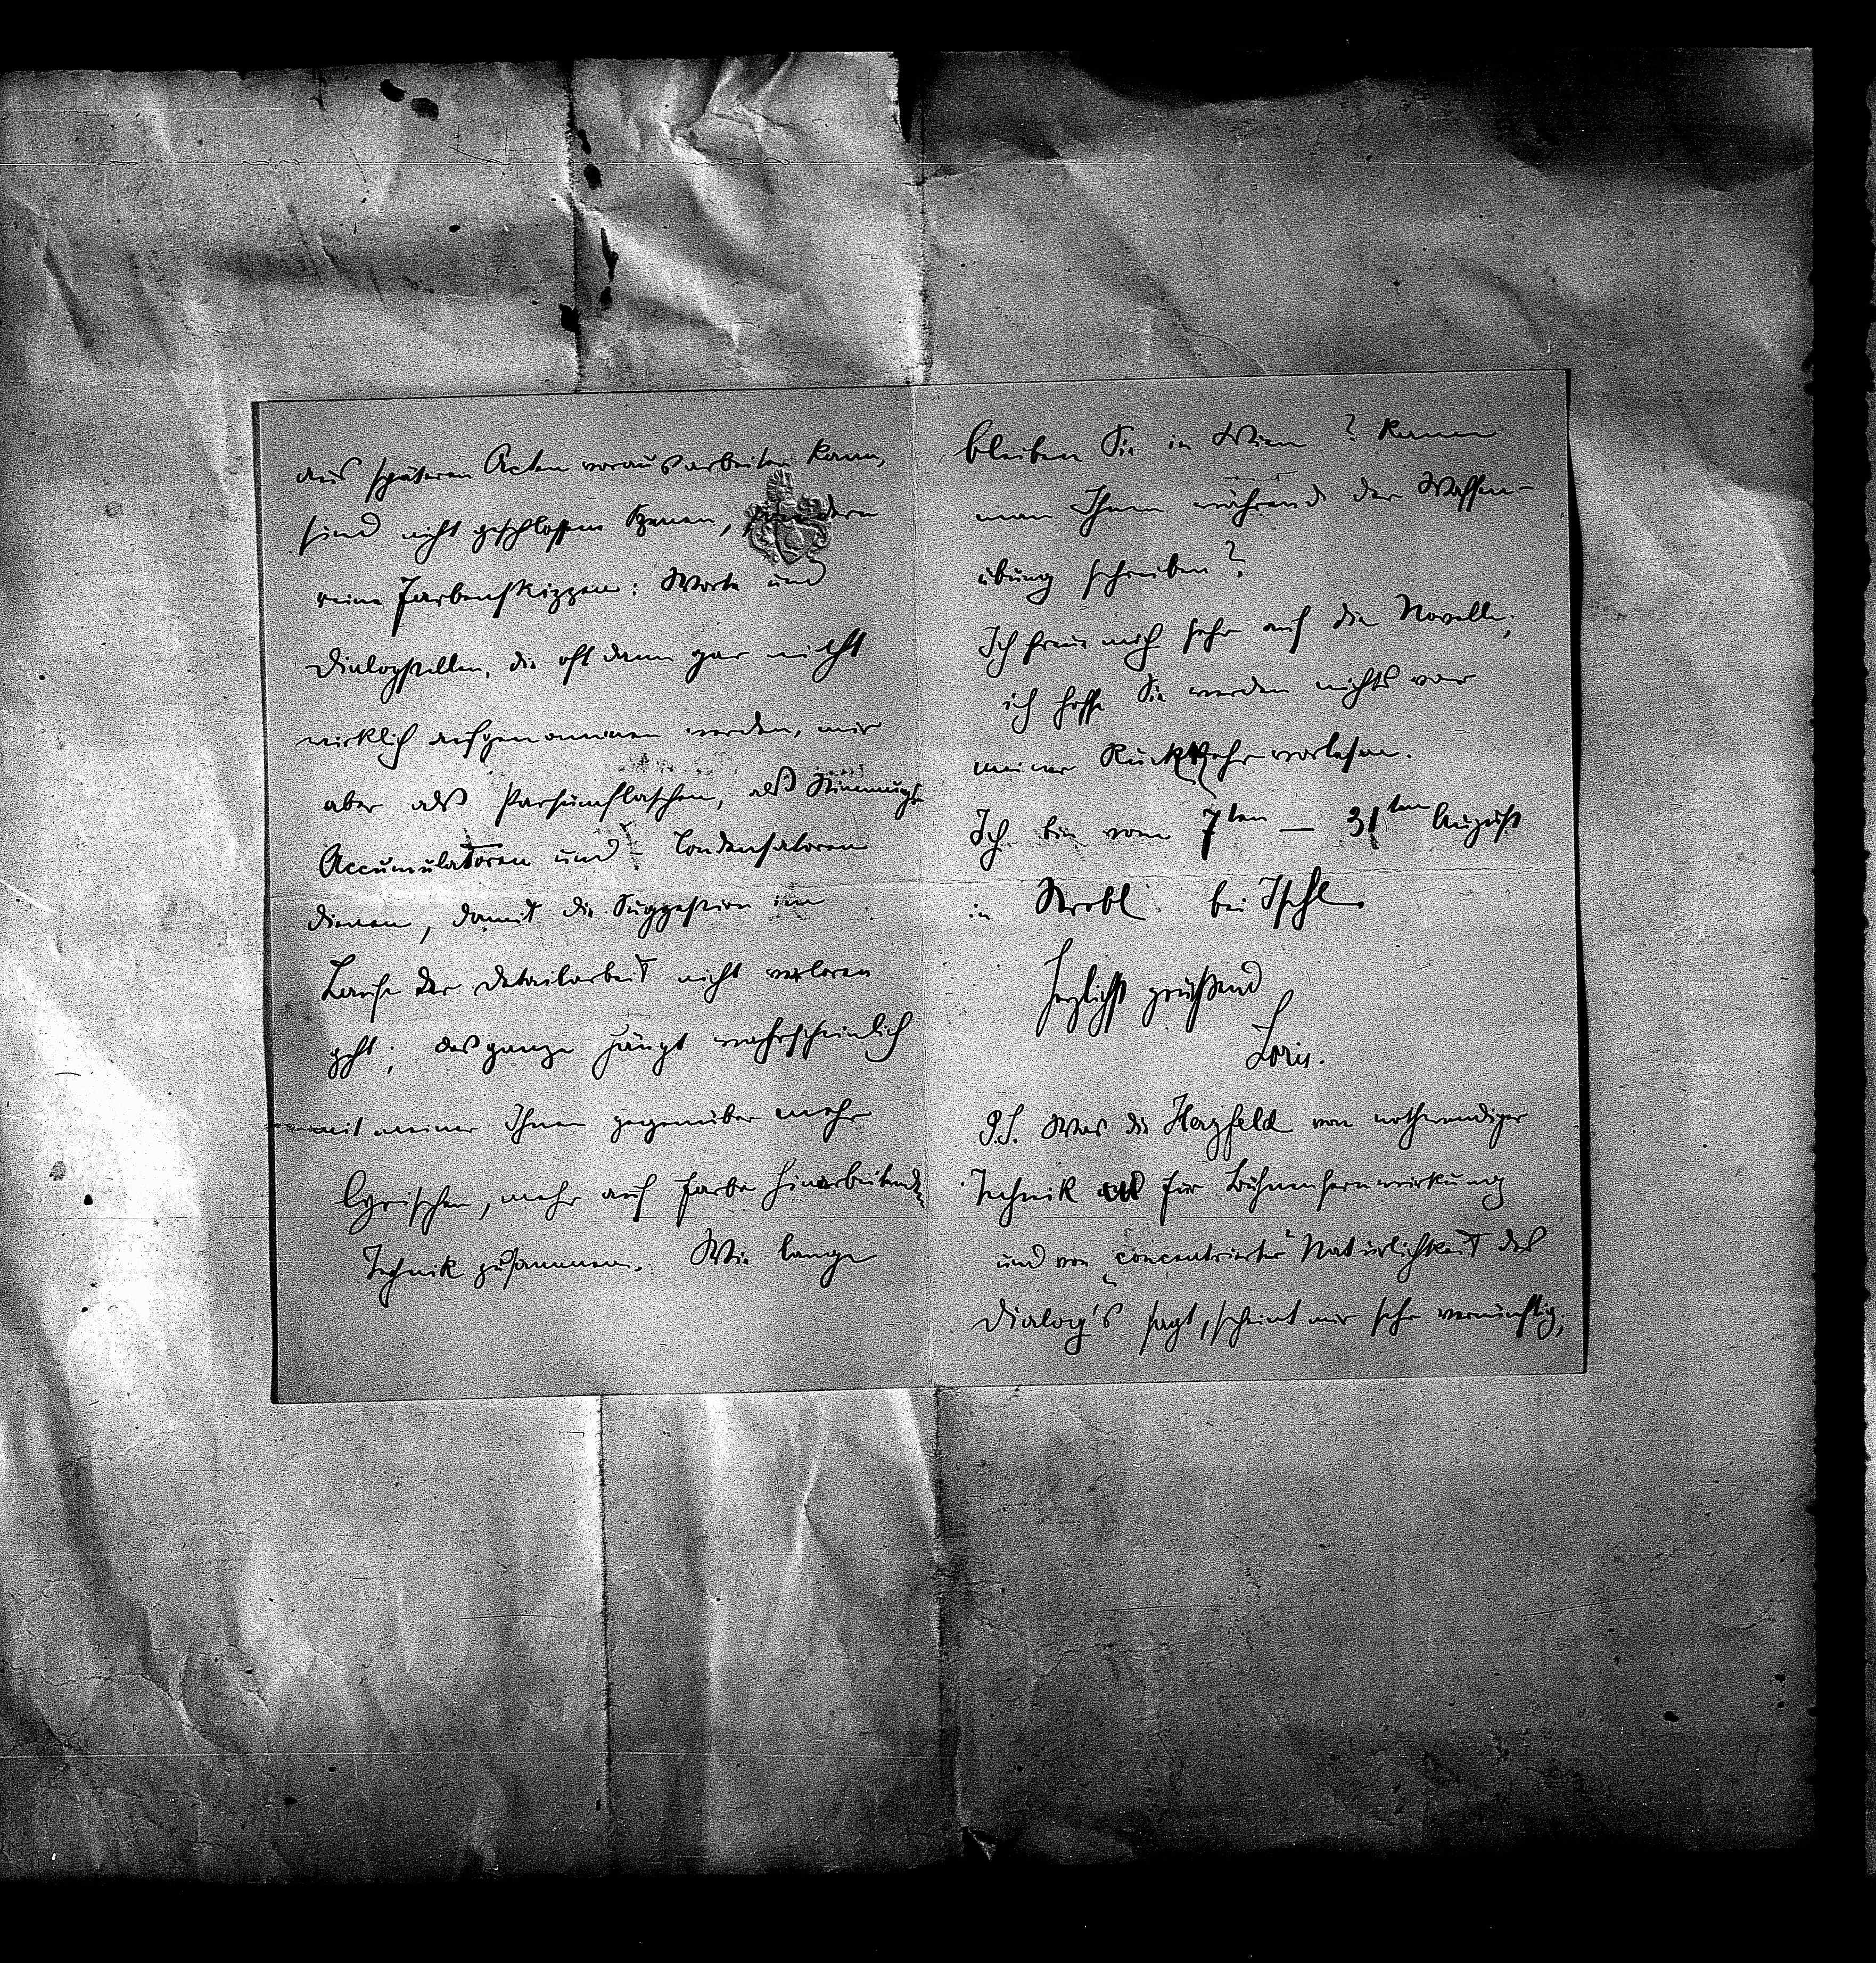 aus späteren Acten vorausarbeiten kann,
sind nicht geschlossene Szenen, sondern
reine Farbenskizzen: Worte und
Dialogstellen, die oft dann gar nicht
wirklich aufgenommen werden, mir
aber als Parfumflaschen, als Stimmungs-
Accumulatoren und – Condensatoren
dienen, damit die Suggestion im
Laufe der Detailarbeit nicht verloren
geht; das ganze hängt wahrscheinlich
mit meiner Ihnen gegenüber mehr
lyrischen, mehr auf Farbe hinarbeitenden
Technik zusammen. Wie lange
bleiben Sie in Wien? Kann
man Ihnen während der Waffen-
übung schreiben?
Ich freue mich sehr auf die Novelle;
ich hoffe Sie werden nichts vor
meiner Rückkehr vorlesen.
Ich bin vom 7ten — 31ten August
in Strobl bei Ischl.
Herzlichst grüßend
Loris.
P.S. Was die Herzfeld von nothwendiger
Technik für Bühnenfernwirkung
und von „concentrierter" Natürlichkeit des
Dialog's sagt, scheint mir sehr vernünftig;